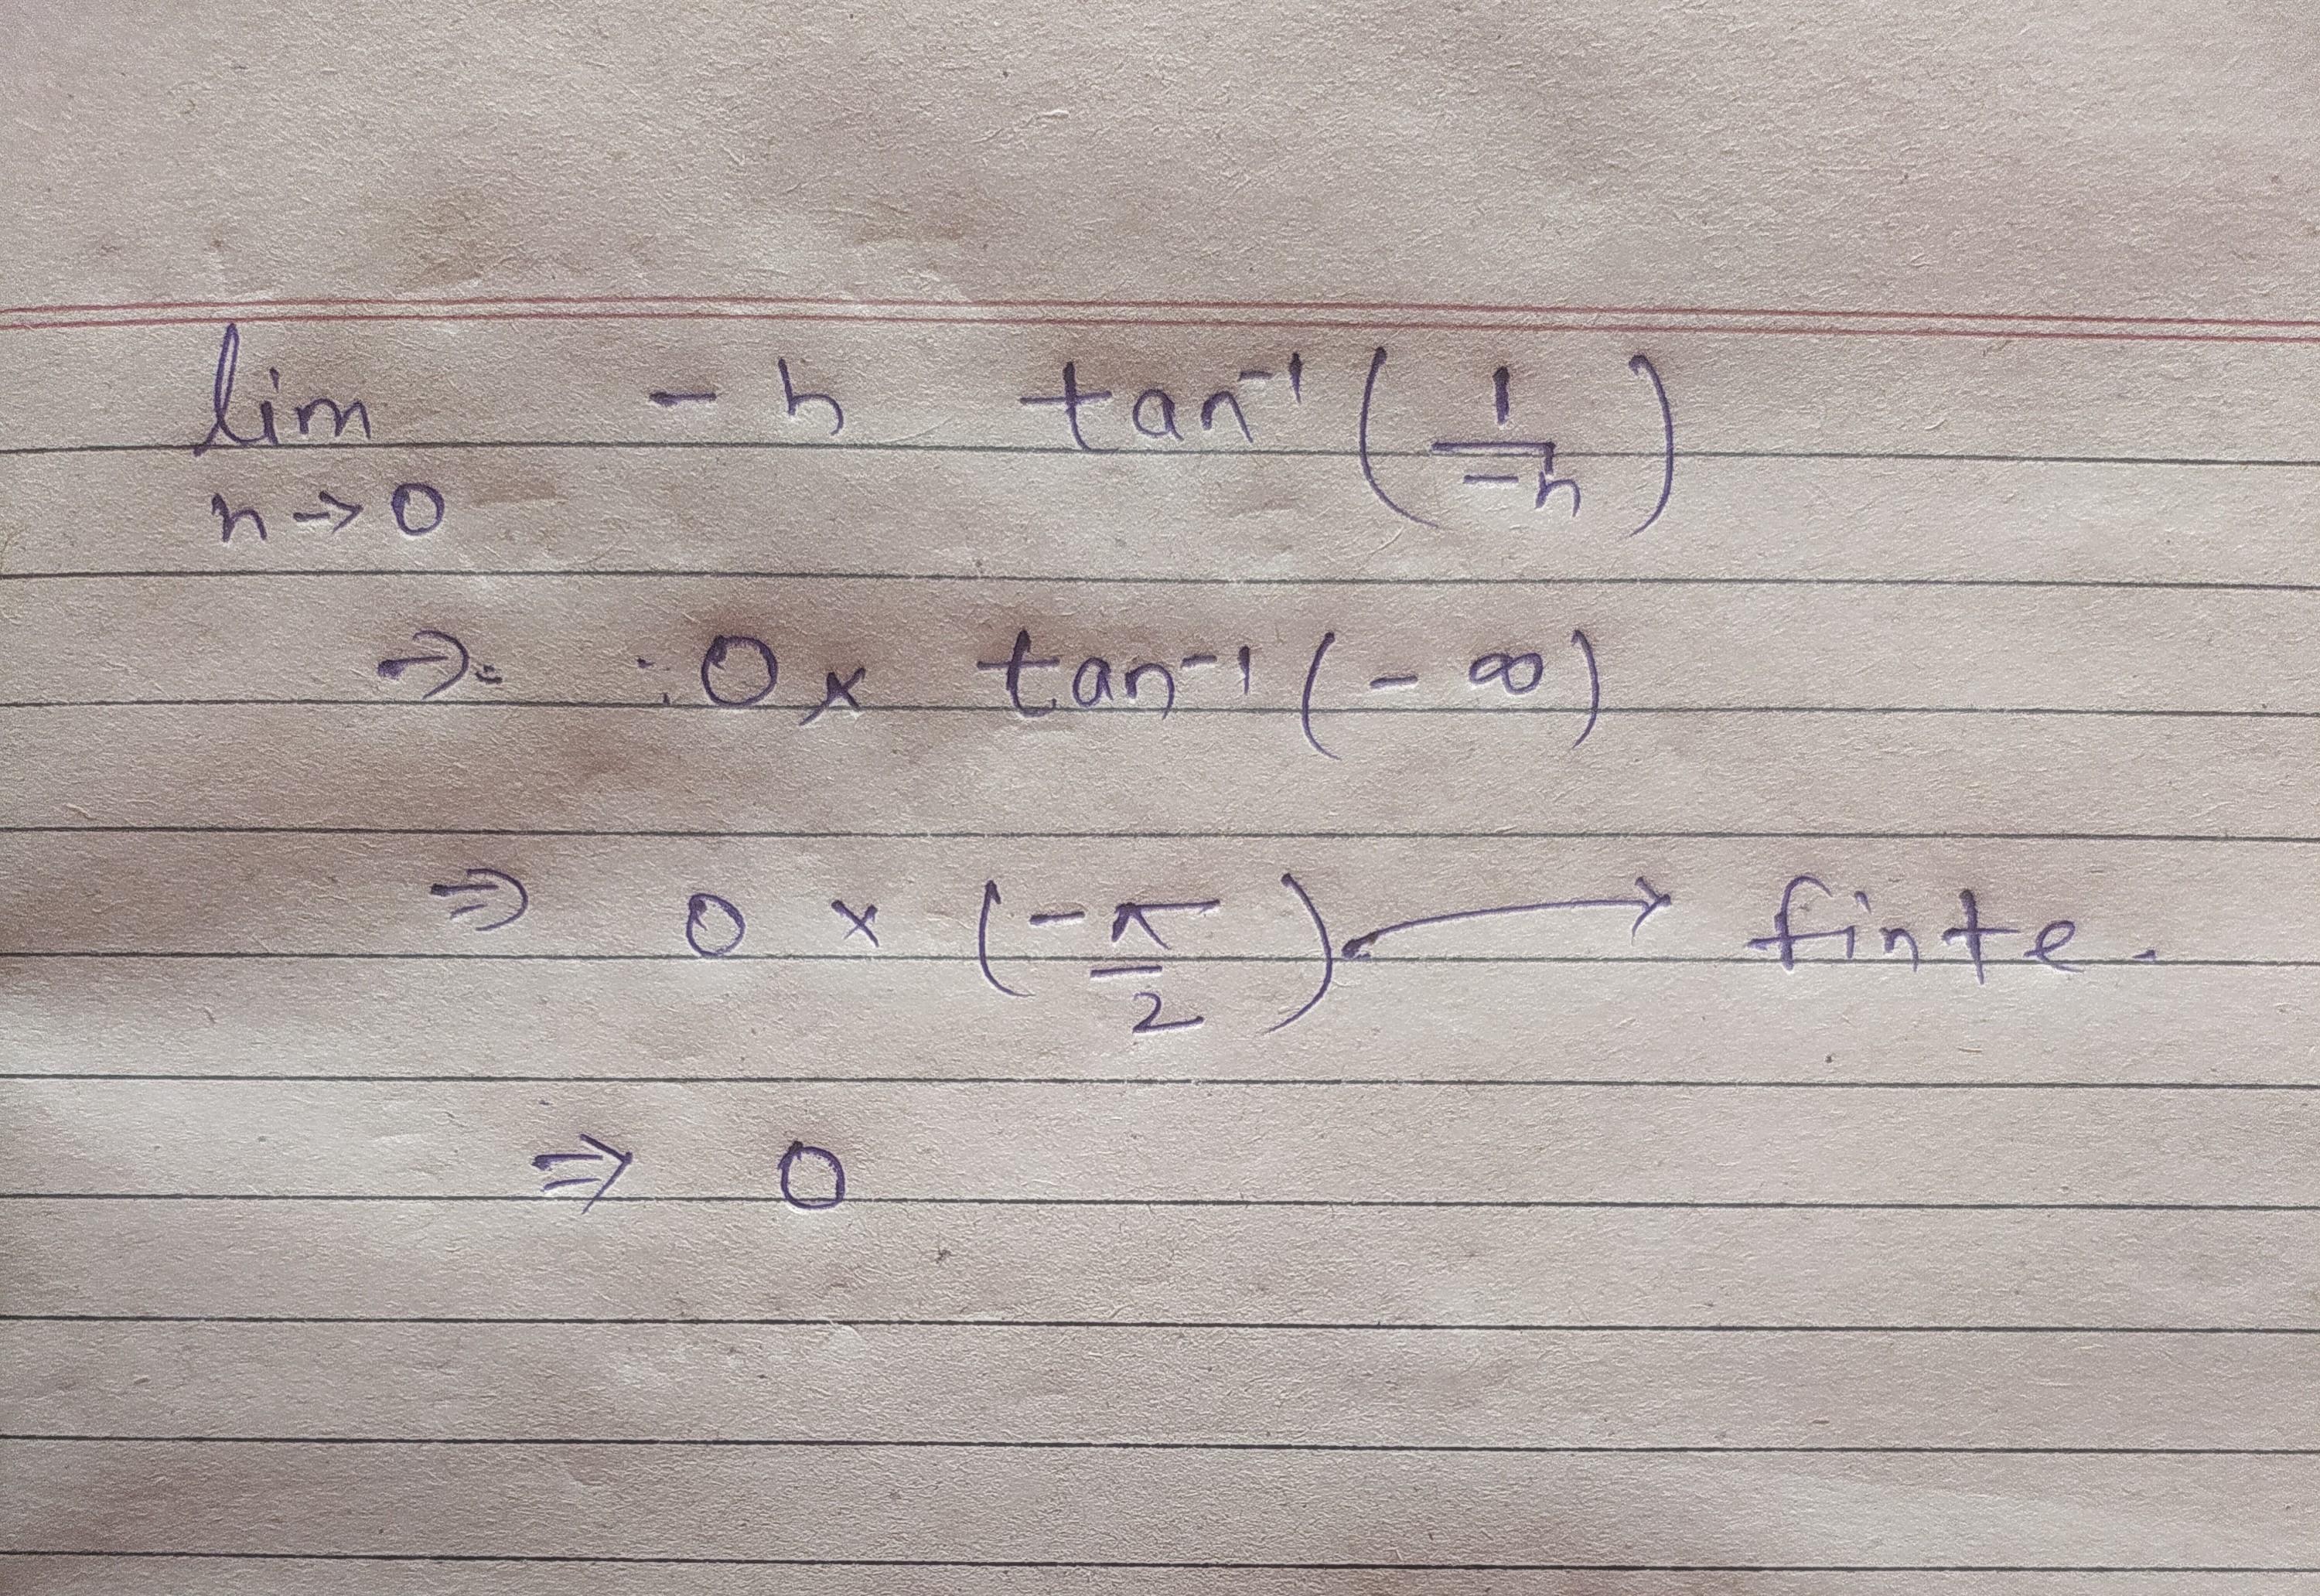 lim - h tan⁻¹ (1/-h)
h→0
⇒ 0 × tan⁻¹ (- ∞)
⇒ 0 × (-π/2) → finte.
⇒ 0